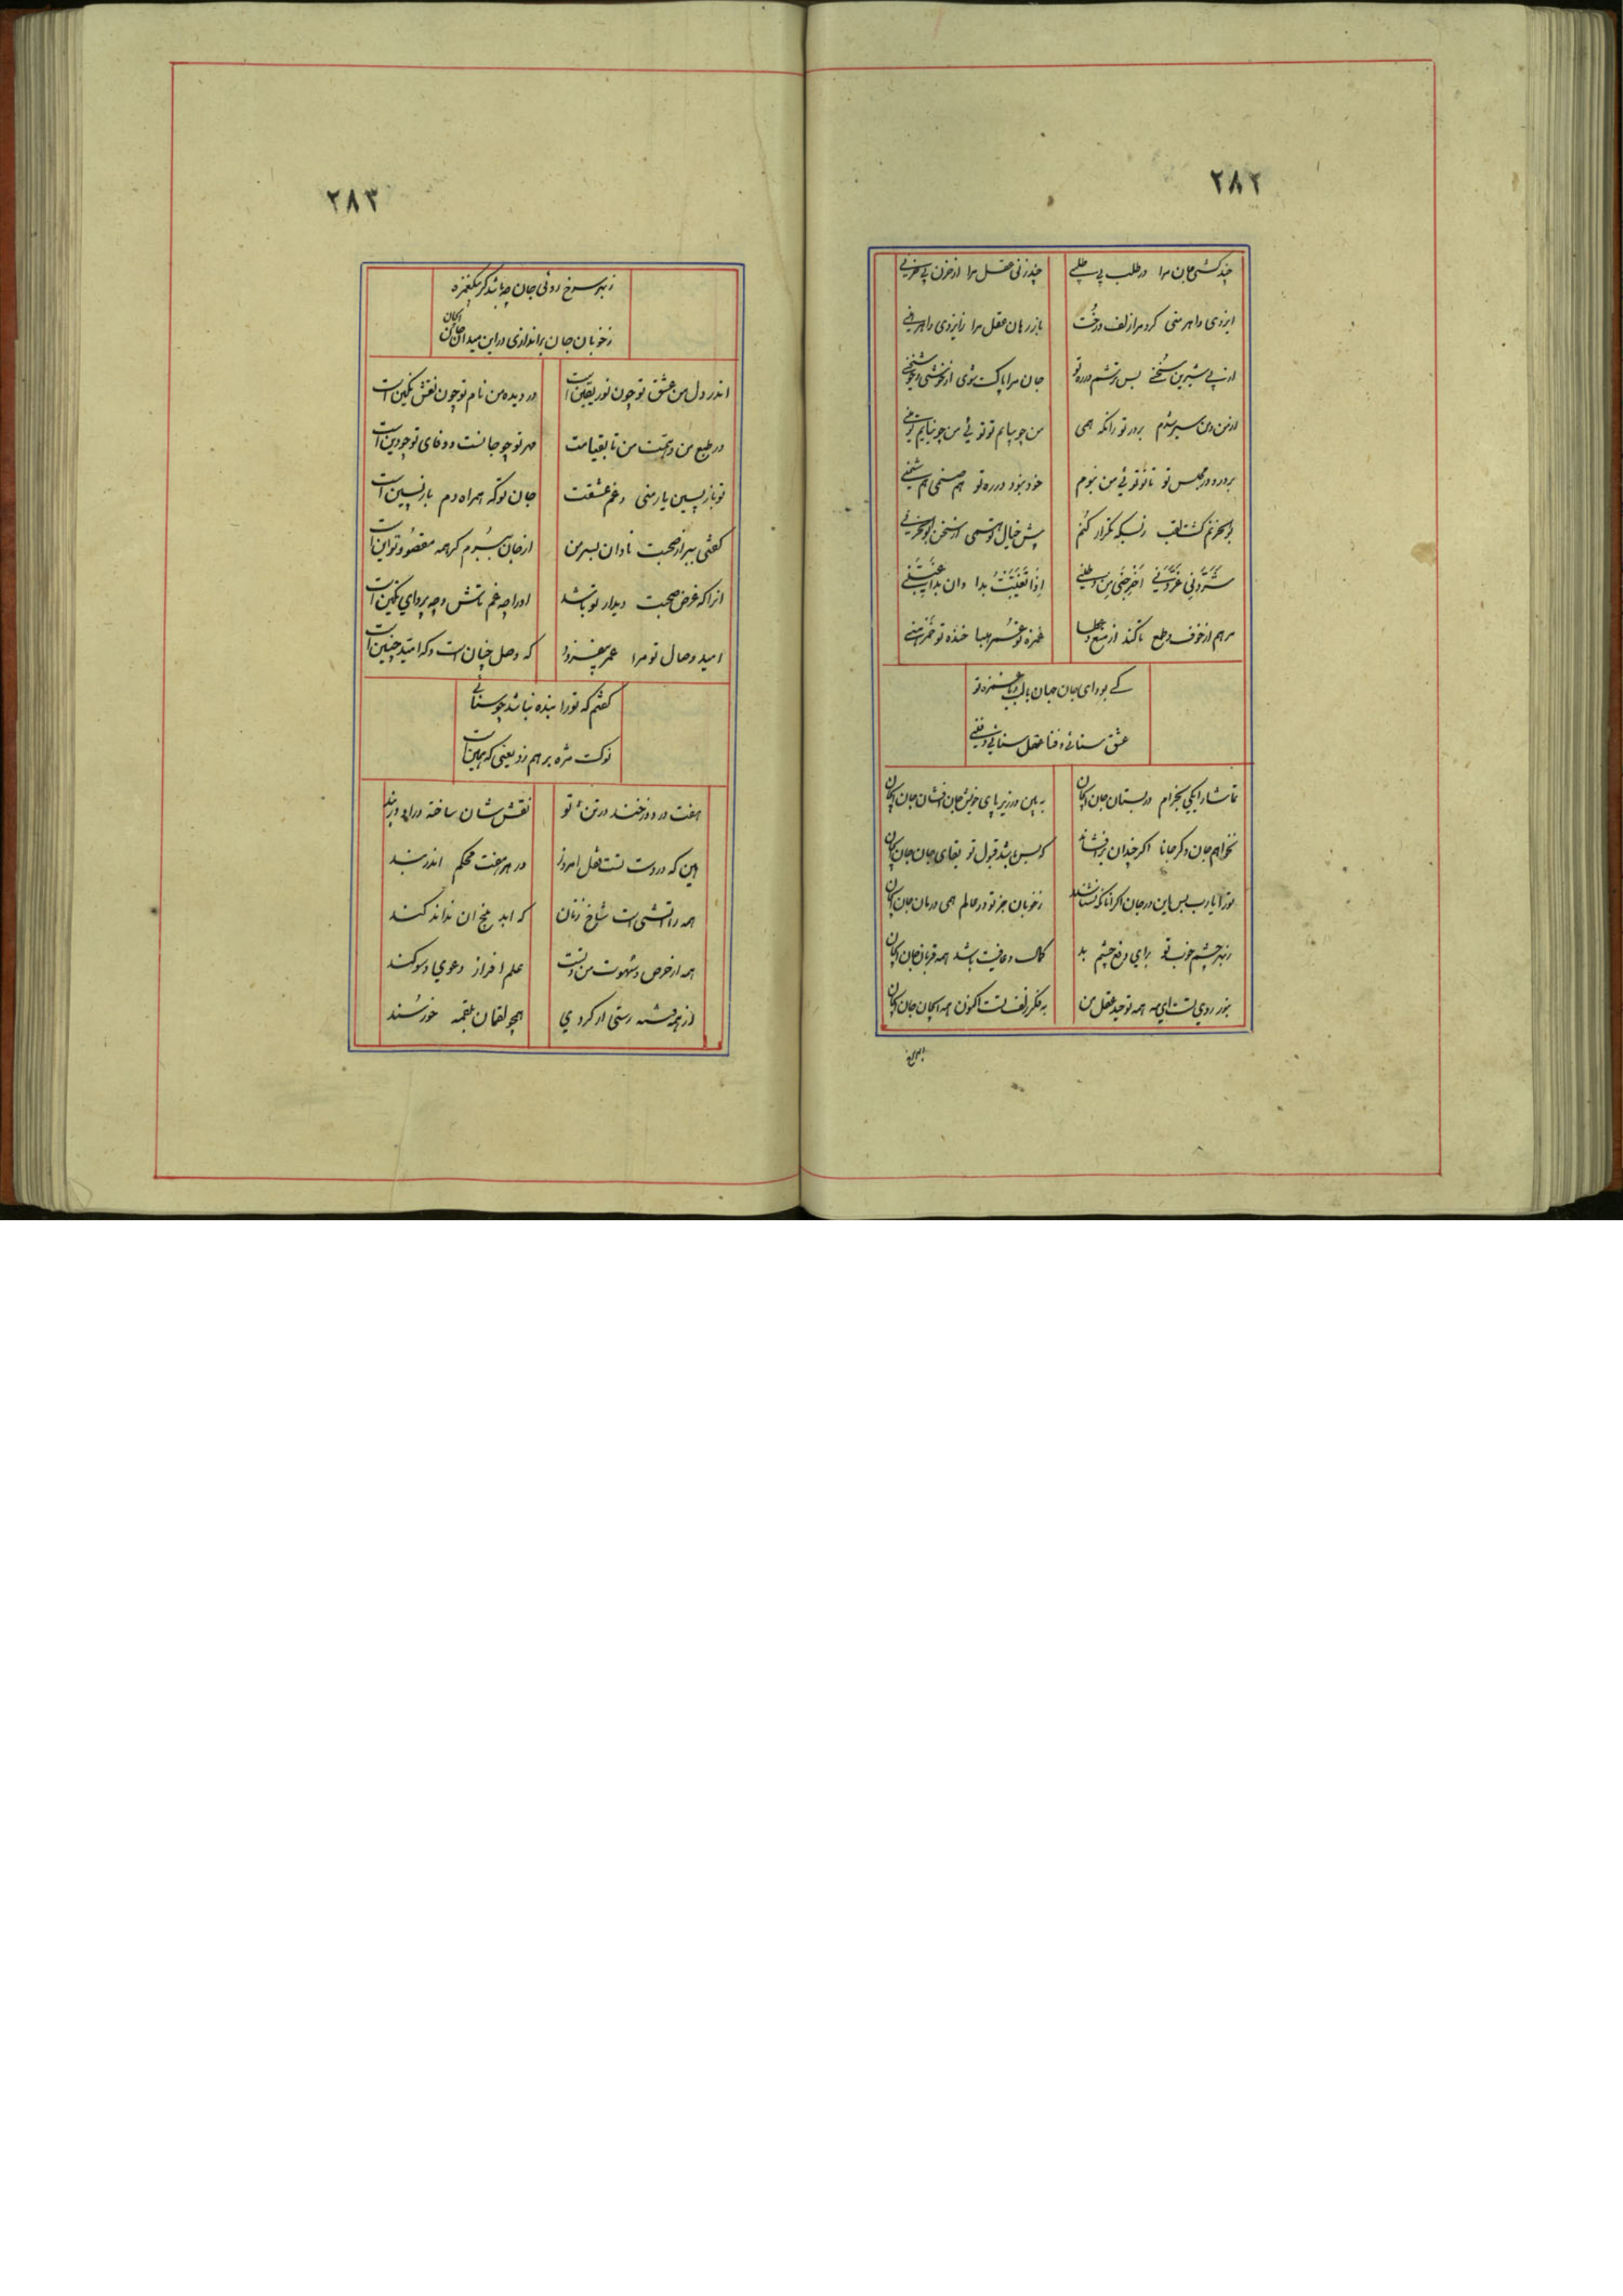 ۲۸۲
چند کشی جان مرا در طلب بی طلبی چند زنی عقل مرا از حزن بی حزنی
ایزدی و اهرمنی کرد مرا زلف و رخت باز رهان عقل مرا زایزدی و اهرمنی
از پی شیرین سخنی بس ترشم در ره تو جان مرا پاک بشوی از خوشی و خوش سخنی
از من و من سیر شدم بر در تو زانکه همی من چو بیایم تو تو نی من چو نیایم تو منی
بر در و در مجلس تو تا تو توئی من نبوم خود نبود در ره تو هم صنمی هم شمنی
بوالحزنم گشت لقب زبسکه تکرار کنم پیش خیال تو همی از سخن بوالحزنی
شردنی غربنی اخرجنی من وطنی اذا تغیبت بدا وان بدا غیبنی
مرهم از خوف و طمع تا کند از منع و عطا غمزه تو خنده تو
کی بود ای جان جهان با لب و با غمزه تو
عشق سنائی و فنا عقل سنائی و فنی
تماشا را یکی بخرام در بستان جان ای جان به بین در زیر پای خویش جان افشان جان ای جان
نخواهم جان دگر جانا اگر چندان برافشاند که بس باشد قبول تو بقای جان جان ای جان
ترا یارب بس این در جان اگر زخوبان جز تو در عالم همی درمان جان ای جان
زبهر چشم خوب تو برای دفع چشم بد کمال و عافیت باشد همه قربان جان ای جان
بنور روی تست ای مه همه توحید عقل من به فکر زلف تست اکنون همه ایمان جان ای جان
۲۸۳
زبهر سرخ روئی جان چه باشد گر بیک غمزه
زخوبان جان براندازی در این میدان جان ای جان
اندر دل من عشق تو چون نور یقین است در دیده من نام تو چون نقش نگین است
در طبع من و همت من تا بقیامت مهر تو چو جانست و وفای تو چو دین است
تو بازپسین یار منی و غم عشقت جان تو که همراه دم بازپسین است
گفتی ببر از صحبت نادان بسر من از جان ببرم گر همه مقصود تو این است
آنرا که غرض صحبت دیدار تو باشد او را چه غم تاش و چه پروای تکین است
امید وصال تو مرا عمر بیفزود که وصل چنان است و که امید چنین است
گفتم که تو را بنده نباشد چو سنائی
نوک مژه برهم زد یعنی که همین است
هفت در دوزخند در تن تو نقششان ساخته در او دربند
هین که در دست تست قفل امروز در هر هفت محکم اندر بند
همه را آتشی است شاخ زنان که ابد بیخ آن نداند کند
همه از حرص و شهوت من و تست علم افراز دعوی و سوگند
از همه رستی ار کردی همچو لقمان بلقمه خورسند